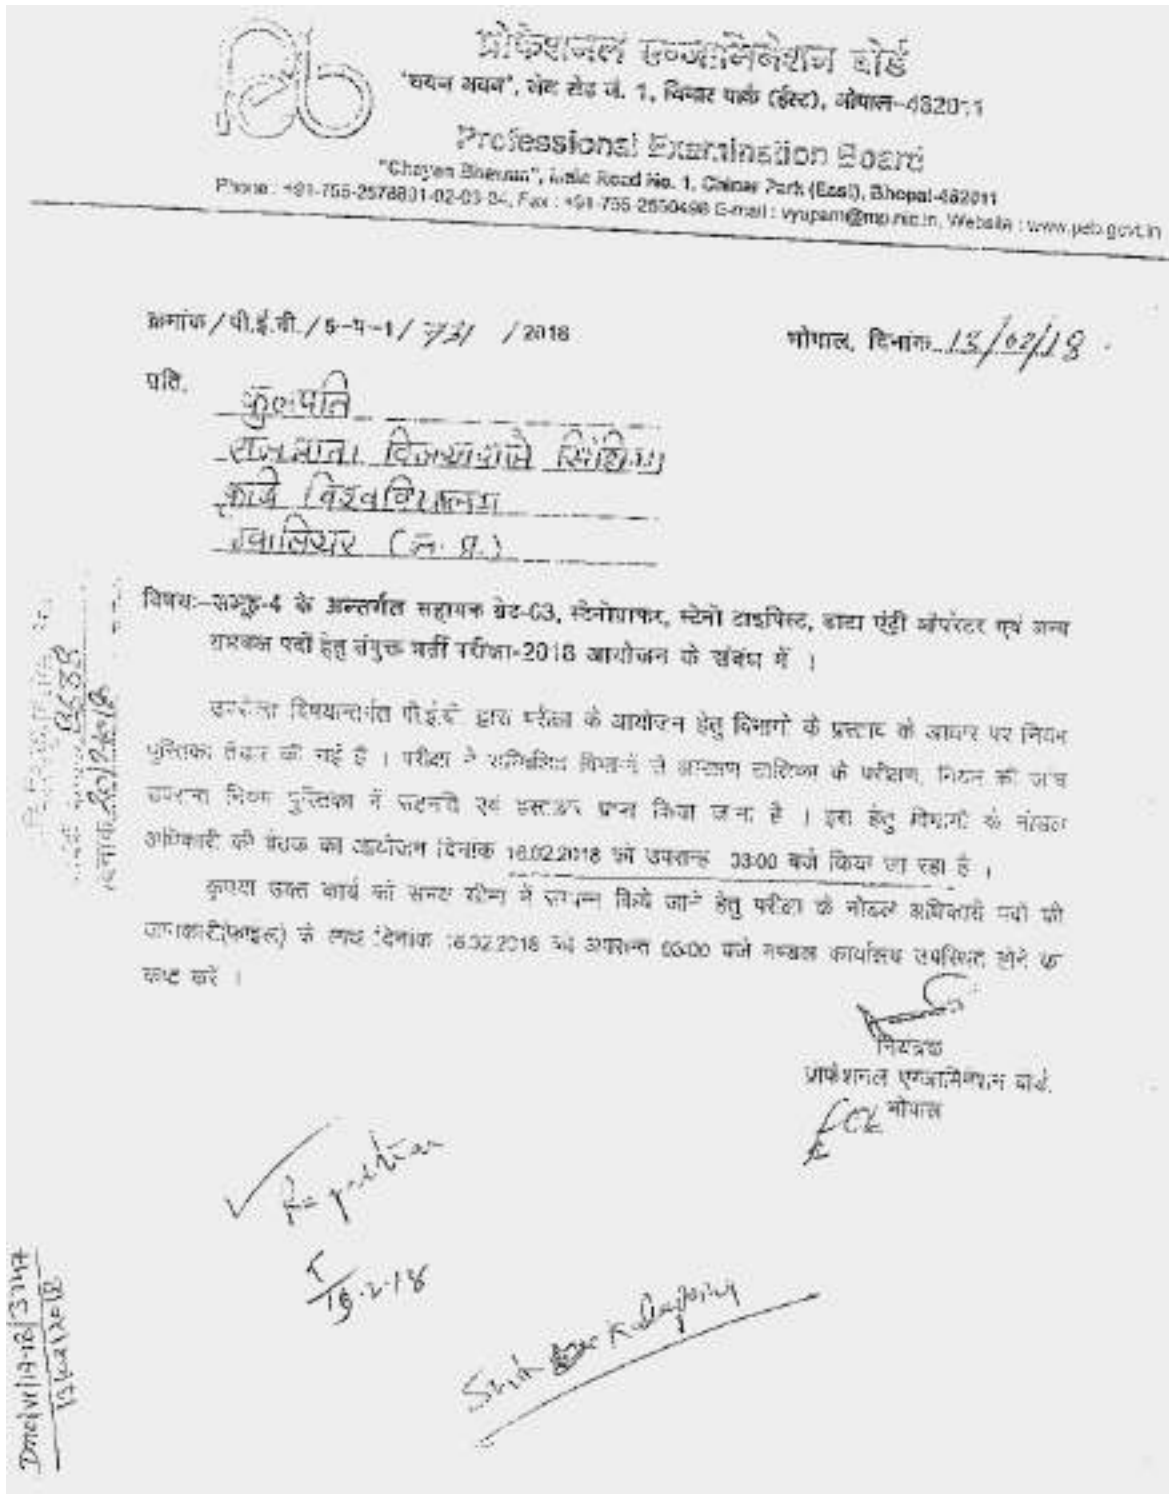 peb
प्रोफेशनल एग्जामिनेशन बोर्ड
"चयन भवन", मेन रोड नं. 1, चिनार पार्क (ईस्ट), भोपाल-462011
Professional Examination Board
"Chayan Bhavan", Main Road No. 1, Chinar Park (East), Bhopal-462011
Phone : +91-755-2578801-02-03-04, Fax : +91-755-2550498 E-mail : vyapam@mp.nic.in, Website : www.peb.gov.in
क्रमांक / पी.ई.बी. / 5-प-1/ 731 / 2018
भोपाल, दिनांक 13/02/18.
प्रति,
कुलपति
राजमाता विजयाराजे सिंधिया
कृषि विश्वविद्यालय
ग्वालियर (म.प्र.)
विषयः-समूह-4 के अन्तर्गत सहायक ग्रेड-03, स्टेनोग्राफर, स्टेनो टाइपिस्ट, डाटा एंट्री ऑपरेटर एवं अन्य
समकक्ष पदों हेतु संयुक्त भर्ती परीक्षा-2018 आयोजन के संबंध में ।
उपरोक्त विषयान्तर्गत पी.ई.बी. द्वारा परीक्षा के आयोजन हेतु विभागों के प्रस्ताव के आधार पर नियम
पुस्तिका तैयार की गई है । परीक्षा में सम्मिलित विभागों से आरक्षण तालिका के परीक्षण, नियम की जांच
उपरान्त नियम पुस्तिका में सहमति एवं हस्ताक्षर प्राप्त किया जाना है । इस हेतु विभागों के नोडल
अधिकारी की बैठक का आयोजन दिनांक 16.02.2018 को उपरान्ह 03:00 बजे किया जा रहा है ।
कृपया उक्त कार्य को समय सीमा में सम्पन्न किये जाने हेतु परीक्षा के नोडल अधिकारी पदों की
जानकारी(फाइल) के साथ दिनांक 16.02.2018 को अपरान्ह 03:00 बजे मण्डल कार्यालय उपस्थित होने का
कष्ट करें ।
नियंत्रक
प्रोफेशनल एग्जामिनेशन बोर्ड,
भोपाल
Registrar
19.2.18